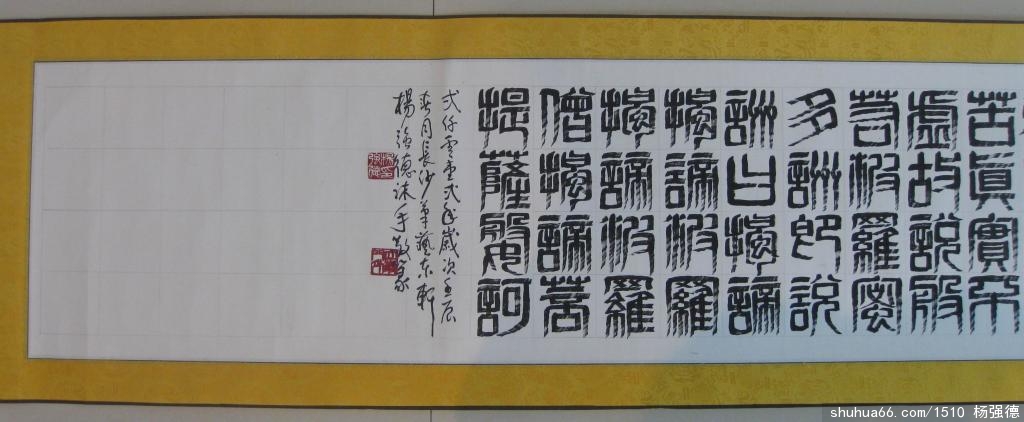 苦眞實不
虛故說般
若波羅蜜
多詶即說
詶曰揭諦
揭諦波羅
揭諦波羅
僧揭諦菩
提薩婆訶
弍仟零壹弍年歲次壬辰
春月長沙華藝東軒
楊強德沐手敬篆
shuhua66.com/1510 杨强德